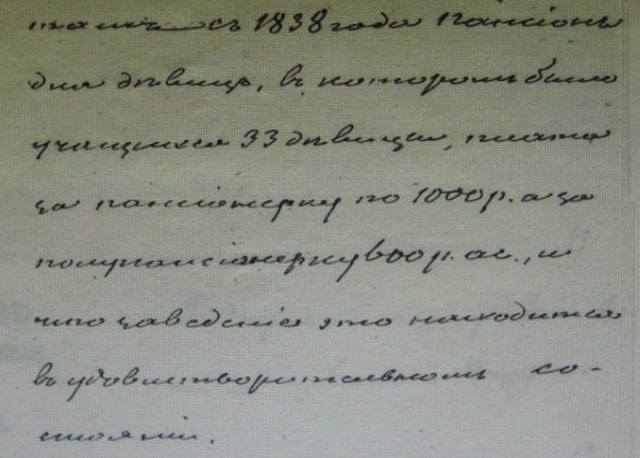 съ 1838 года пансіонъ
для дѣвицъ, въ которомъ было
учащихся 33 дѣвицы, плата
за пансіонерку по 1000 р. а за
полупансіонерку 600 р. ас., и
что заведеніе это находится
въ удовлетворительномъ со-
стояніи.